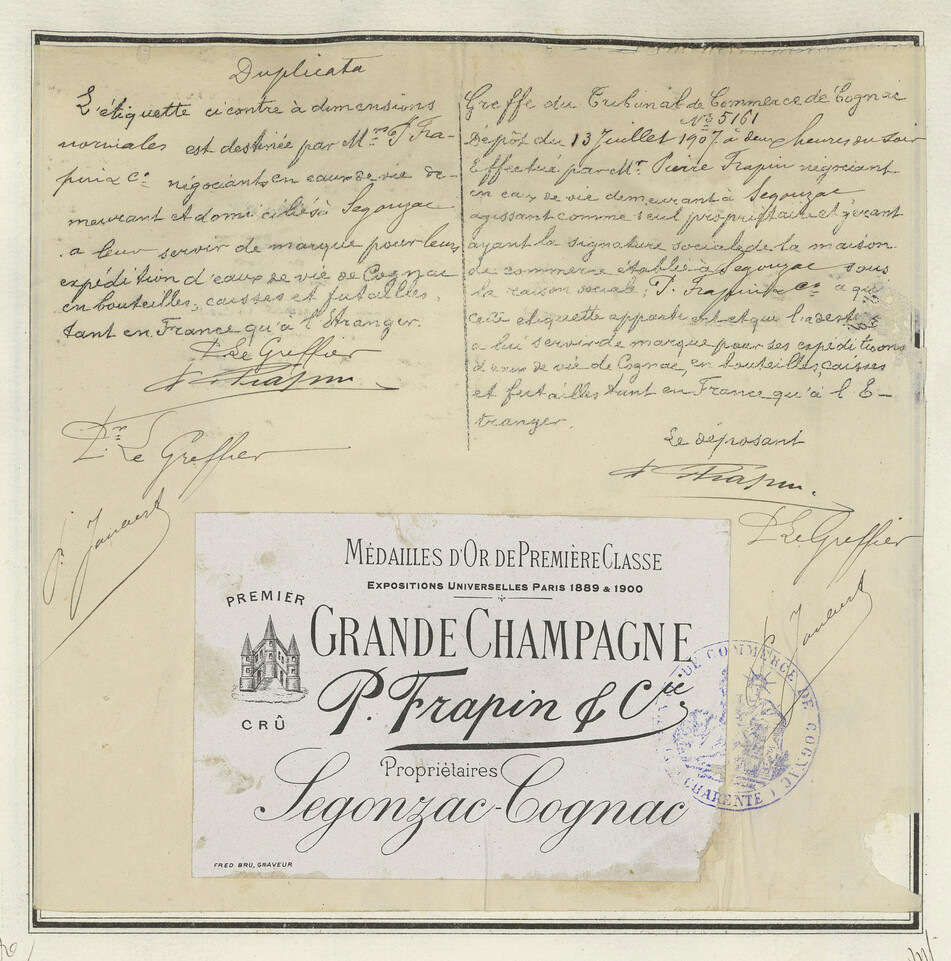 Duplicata
L'étiquette ci contre à dimensions
normales est destinée par Mrs P. Fra-
pin & Co négociants en eaux de vie de-
meurant et domiciliés à Segonzac
a leur servir de marque pour leurs
expédition d'eaux de vie de Cognac
en bouteilles, caisses et futailles,
tant en France qu'à l'Etranger.
Le Greffier
P. Frapin
Le Greffier
Greffe du Tribunal de Commerce de Cognac
No 5161
Dépôt du 13 Juillet 1907 à deux heures du soir
Effectué par Mr. Pierre Frapin négociant
en eaux de vie demeurant à Segonzac
agissant comme seul propriétaire et gérant
ayant la signature sociale de la maison
de commerce établie à Segonzac sous
la raison sociale: P. Frapin & Co a qui
cette étiquette appartient et qui
a lui servir de marque pour ses expéditions
d'eaux de vie de Cognac, en bouteilles, caisses
et futailles tant en France qu'à l'E-
tranger.
Le déposant
P. Frapin
Le Greffier
MÉDAILLES D'OR DE PREMIÈRE CLASSE
EXPOSITIONS UNIVERSELLES PARIS 1889 & 1900
PREMIER
CRÛ
GRANDE CHAMPAGNE
P. Frapin & Cie
Propriétaires
Segonzac-Cognac
FRED. BRU, GRAVEUR
DE COMMERCE DE COGNAC
CHARENTE